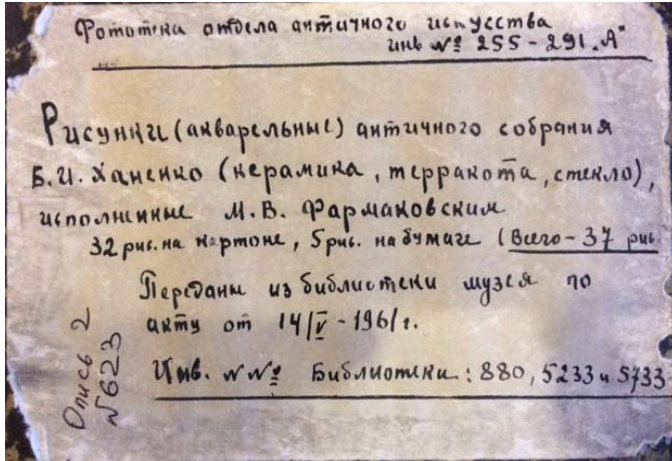 Фототека отдела античного искусства
инв № 255-291.А"
Рисунки (акварельные) античного собрания
Б.И. Ханенко (керамика, терракота, стекло),
исполненные М.В. Фармаковским
32 рис. на картоне, 5 рис. на бумаге (Всего - 37 рис.
Переданы из библиотеки музея по
акту от 14/V - 1961 г.
Инв. №№ Библиотеки: 880, 5233 и 5733
Опись 2
№623